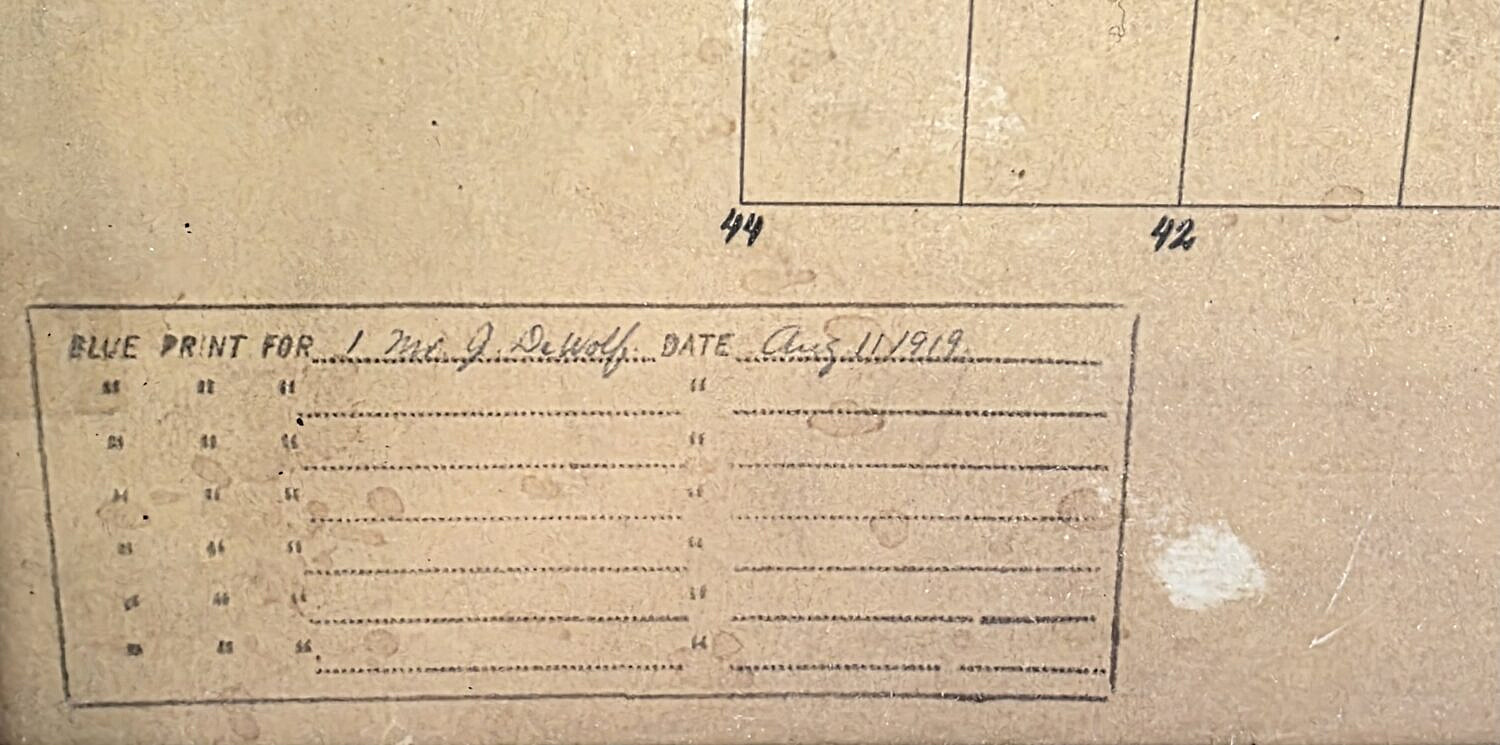 44 42
BLUE PRINT FOR 1 Mr. J. DeWolf. DATE Aug 11/1919.
" " " "
" " " "
" " " "
" " " "
" " " "
" " " "